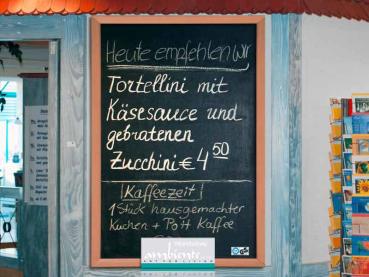 Heute empfehlen wir
Tortellini mit
Käsesauce und
gebratenen
Zucchini € 4 50
Kaffeezeit
1 Stück hausgemachter
Kuchen + Pott Kaffee
ambiente